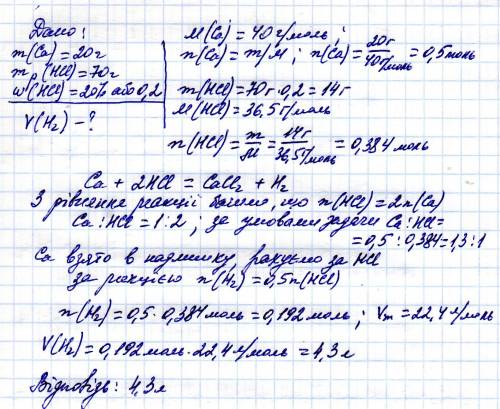 Дано:
m(Ca)=20г
mр(HCl)=70г
w(HCl)=20% або 0,2
V(H₂)-?
M(Ca)=40г/моль;
n(Ca)=m/M; n(Ca)=20г/40г/моль=0,5моль
m(HCl)=70г·0,2=14г
M(HCl)=36,5г/моль
n(HCl)=m/M=14г/36,5г/моль=0,384моль
Ca + 2HCl = CaCl₂ + H₂
З рівняння реакції бачимо, що n(HCl)=2n(Ca)
Ca:HCl=1:2; за умовами задачі Ca:HCl=
=0,5:0,384=1,3:1
Ca взято в надлишку, рахуємо за HCl
за реакцією n(H₂)=0,5n(HCl)
n(H₂)=0,5·0,384моль=0,192моль; Vm=22,4л/моль
V(H₂)=0,192моль·22,4л/моль=4,3л
Відповідь: 4,3л